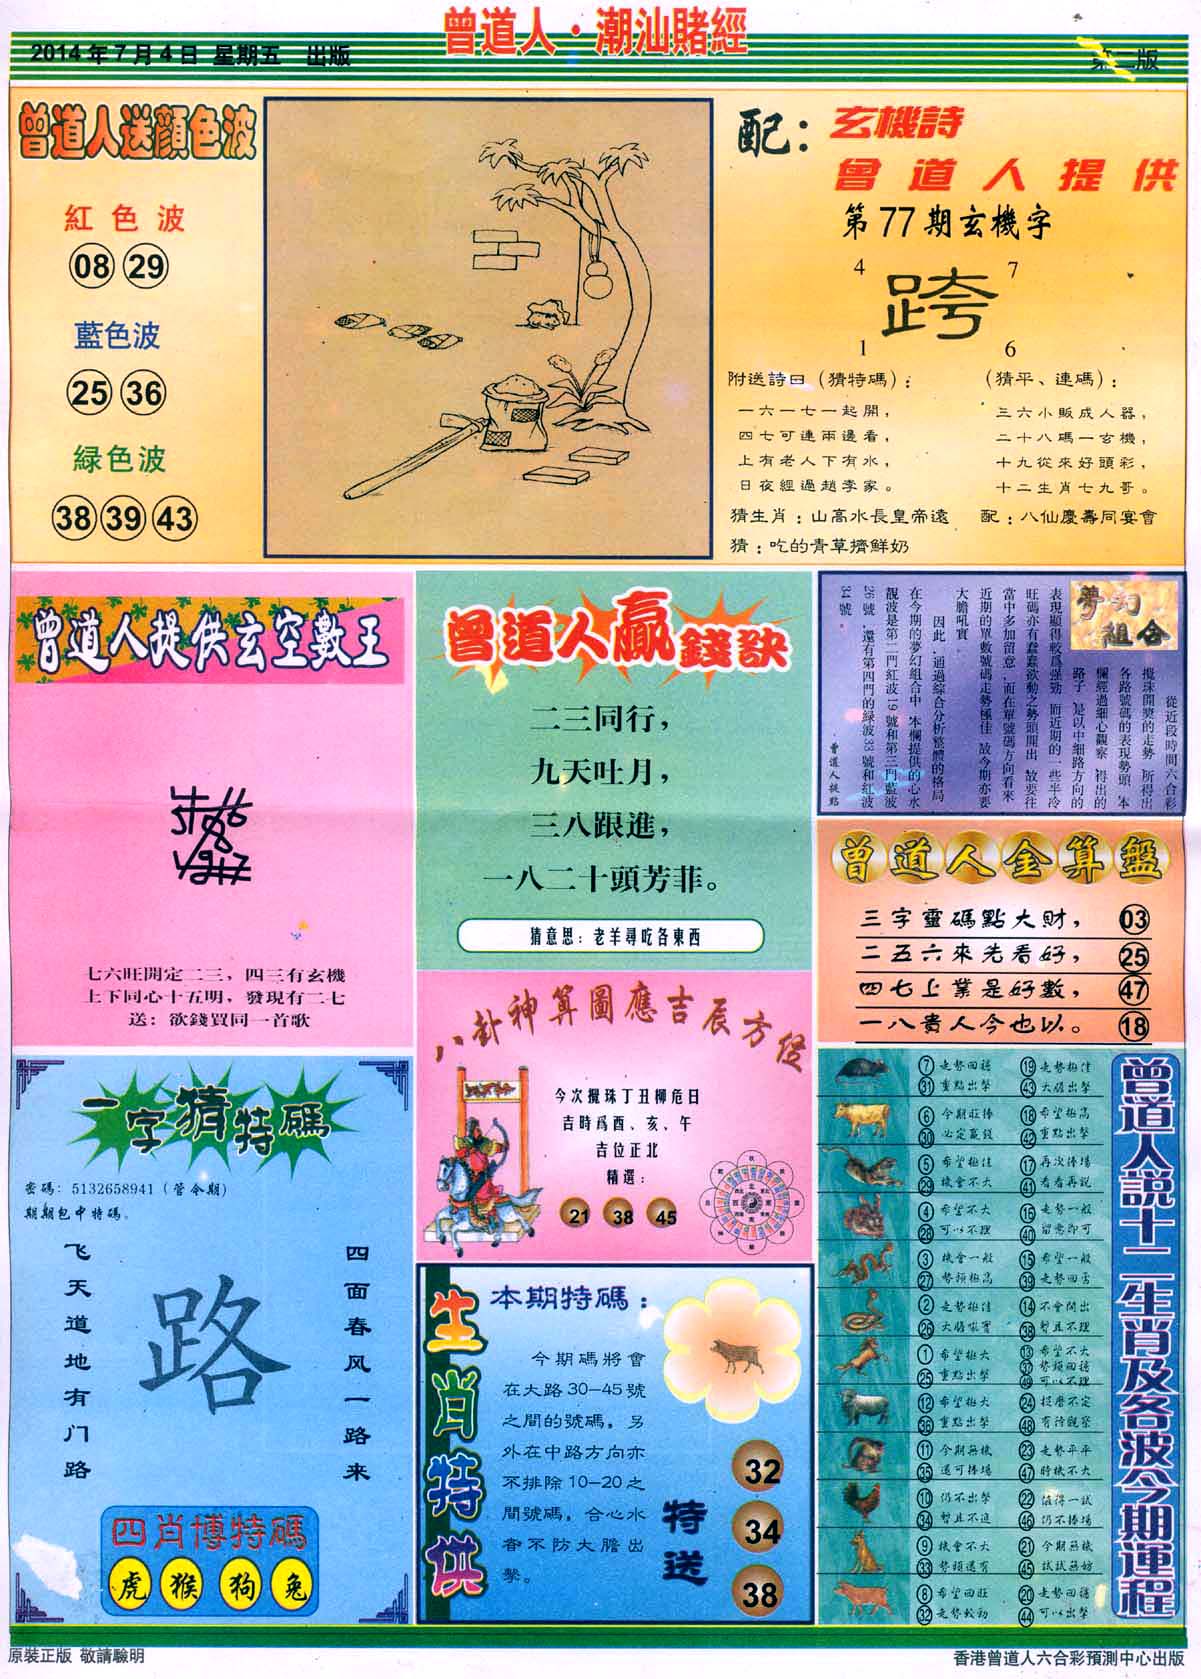 2014年7月4日 星期五 出版
曾道人·潮汕賭經
第二版
曾道人送顏色波
紅色波
08 29
藍色波
25 36
緑色波
38 39 43
配:
玄機詩
曾道人提供
第77期玄機字
4 7
跨
1 6
附送詩曰(猜特碼):
一六一七一起開,
四七可連兩邊看,
上有老人下有水,
日夜經過趙李家。
(猜平、連碼):
三六小販成人器,
二十八碼一玄機,
十九從來好頭彩,
十二生肖七九哥。
猜生肖:山高水長皇帝遠 配:八仙慶壽同宴會
猜:吃的青草擠鮮奶
曾道人提供玄空數王
七六旺開定二三,四三有玄機
上下同心十五明,發現有二七
送:欲錢買同一首歌
曾道人贏錢訣
二三同行,
九天吐月,
三八跟進,
一八二十頭芳菲。
猜意思:老羊尋吃各東西
夢幻組合
從近段時間六合彩
攪珠開獎的走勢,所得出
各路號碼的表現勢頭,本
欄經過細心觀察,得出的
路子,是以中細路方向的
表現顯得較爲强勁,而近期的一些半冷
旺碼亦有蠢蠢欲動之勢頭開出,故要往
當中多加留意,而在單號碼方向看來,
近期的單數號碼走勢極佳,故今期亦要
大膽吼實。
因此,通過綜合分析整體的格局,
在今期的夢幻組合中,本欄提供的心水
靚波是第二門紅波19號和第三門藍波
25號,還有第四門的緑波33號和紅波
34號。
曾道人提點
曾道人金算盤
三字靈碼點大財, 03
二五六來先看好, 25
四七上業是好數, 47
一八貴人今也以。 18
八卦神算圖應吉辰方位
今次攪珠丁丑柳危日
吉時爲酉、亥、午
吉位正北
精選:
21 38 45
一字猜特碼
密碼:5132658941(管令期)
期期包中特碼。
飞天道地有门路
路
四面春风一路来
四肖博特碼
虎 猴 狗 兔
生肖特供
本期特碼:
今期碼將會
在大路30—45號
之間的號碼,另
外在中路方向亦
不排除10—20之
間號碼,合心水
者不防大膽出
擊。
特送
32
34
38
曾道人説十二生肖及各波今期運程
7 走勢回穩 19 走勢極佳
31 重點出擊 43 大膽出擊
6 今期旺捧 18 希望極高
30 必定贏錢 42 重點出擊
5 希望極佳 17 再次捧場
29 機會不大 41 看看再説
4 希望不大 16 走勢一般
28 可以不理 40 留意即可
3 機會一般 15 希望一般
27 勢頭極高 39 走勢回雪
2 走勢極佳 14 不會開出
26 大膽吼實 38 暫且不理
1 希望極大 13 希望不大
25 重點出擊 37 勢頭回穩
49 可以不理
12 希望極大 24 捉磨不定
36 重點出擊 48 有待觀察
11 今期無機 23 走勢平平
35 還可捧場 47 時機不大
10 仍不出擊 22 值得一試
34 暫且不追 46 仍不捧場
9 機會不大 21 今期無機
33 勢頭還有 45 試試無妨
8 希望回旺 20 走勢回穩
32 走勢較初 44 可以出擊
原裝正版 敬請驗明
香港曾道人六合彩預測中心出版